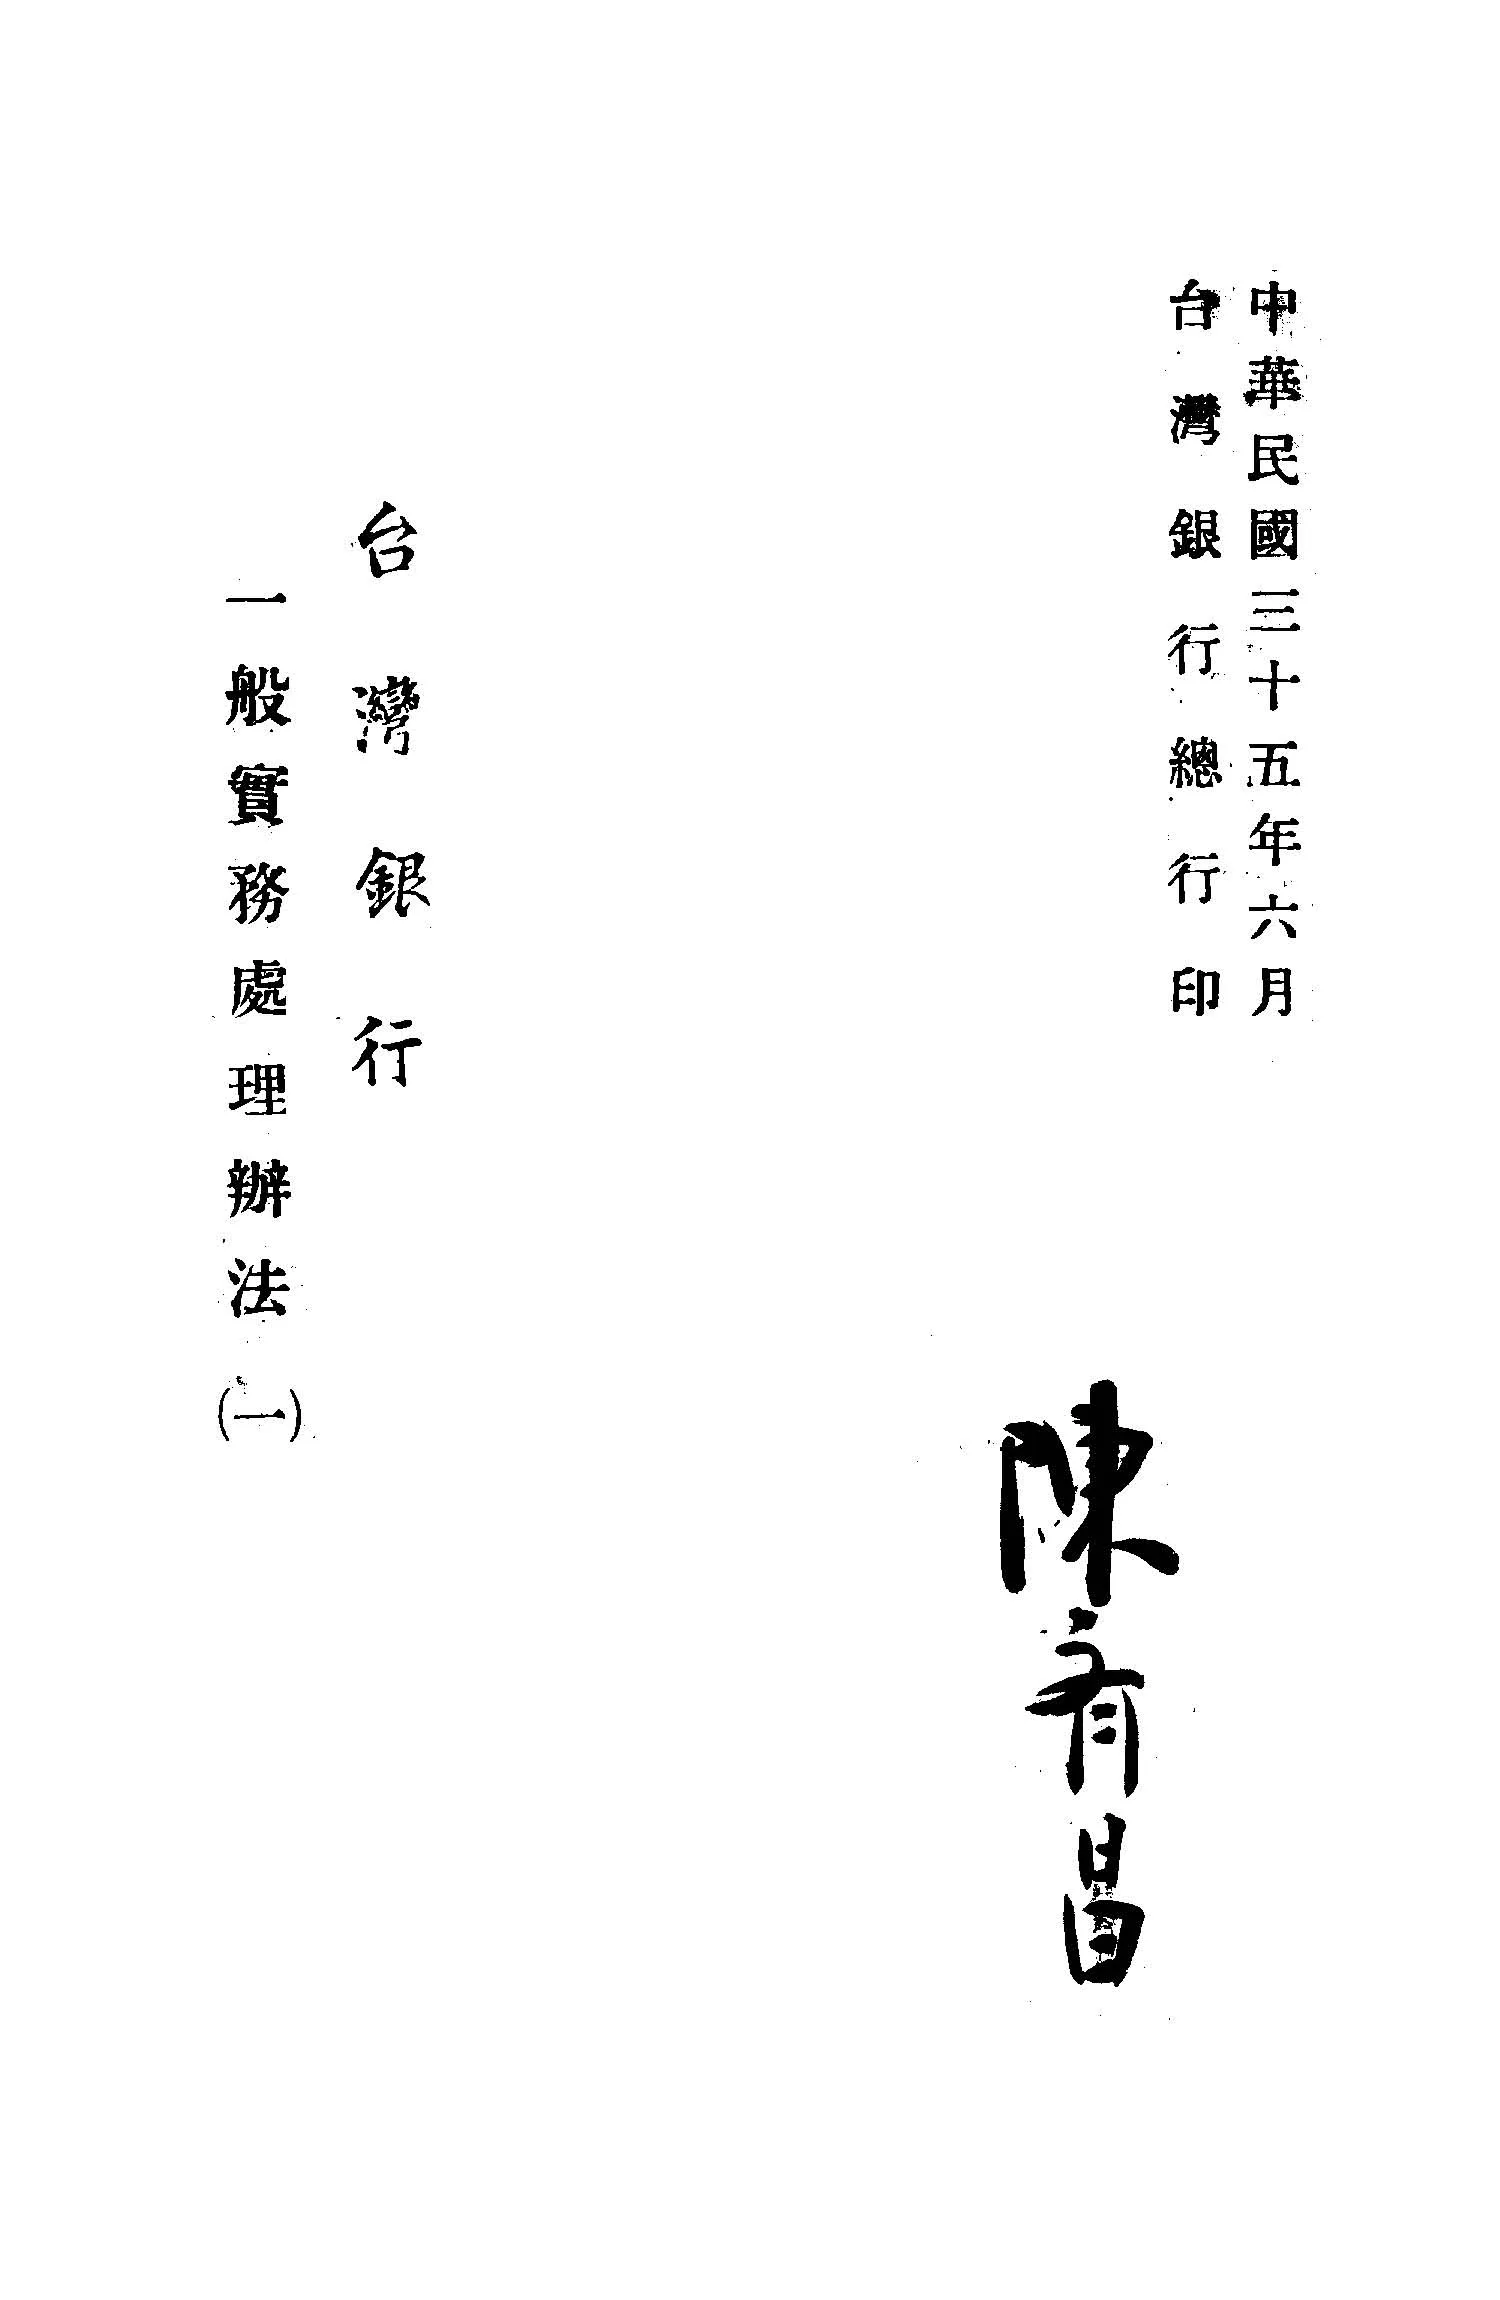 中華民國三十五年六月
台灣銀行總行印
陳有昌
台灣銀行
一般實務處理辦法(一)